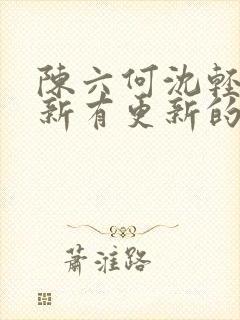 陳六何沈輕
新有更新的
蕭淮路